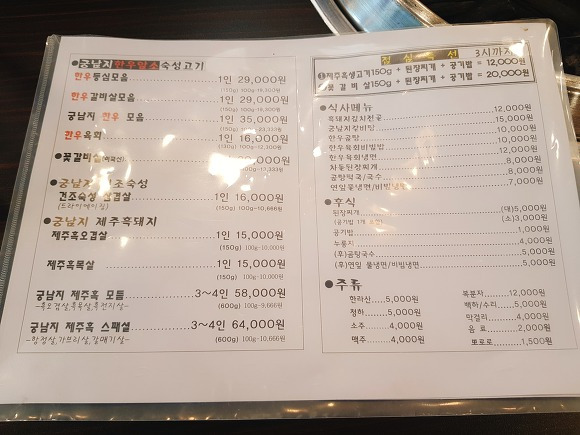 궁남지한우암소숙성고기
한우등심모음 1인 29,000원
한우갈비살모음 1인 29,000원
궁남지 한우 모음 1인 35,000원
한우육회 1인 16,000원
●꽃갈비살
●궁남지 건조숙성
건조숙성 삼겹살 1인 16,000원
(드라이에이징) (150g) 100g-10,666원
●궁남지 제주흑돼지
제주흑오겹살 1인 15,000원
(150g) 100g-10,000원
제주흑목살 1인 15,000원
(150g) 100g-10,000원
궁남지 제주흑 모듬 3~4인 58,000원
-흑오겹살,흑목살,흑전지살- (600g) 100g-9,666원
궁남지 제주흑 스페셜 3~4인 64,000원
-항정살,가브리살,갈매기살- (600g) 100g-10,666원
점심특선 3시까지
❶제주흑생고기150g + 된장찌개 + 공기밥 = 12,000원
꽃갈비살150g + 된장찌개 + 공기밥 = 20,000원
●식사메뉴
흑돼지김치전골 12,000원
궁남지갈비탕 15,000원
한우곰탕 10,000원
한우육회비빔밥 10,000원
한우육회냉면 12,000원
차돌된장찌개 8,000원
곰탕떡국/국수 8,000원
연잎물냉면/비빔냉면 7,000원
●후식
된장찌개 (대)5,000원
(공기밥 1개 포함) (소)3,000원
공기밥 1,000원
누룽지 4,000원
(후)곰탕국수 5,000원
(후)연잎 물냉면/비빔냉면 5,000원
●주류
한라산 5,000원
청하 5,000원
소주 4,000원
맥주 4,000원
복분자 12,000원
백하/수리 5,000원
막걸리 4,000원
음료 2,000원
뽀로로 1,500원